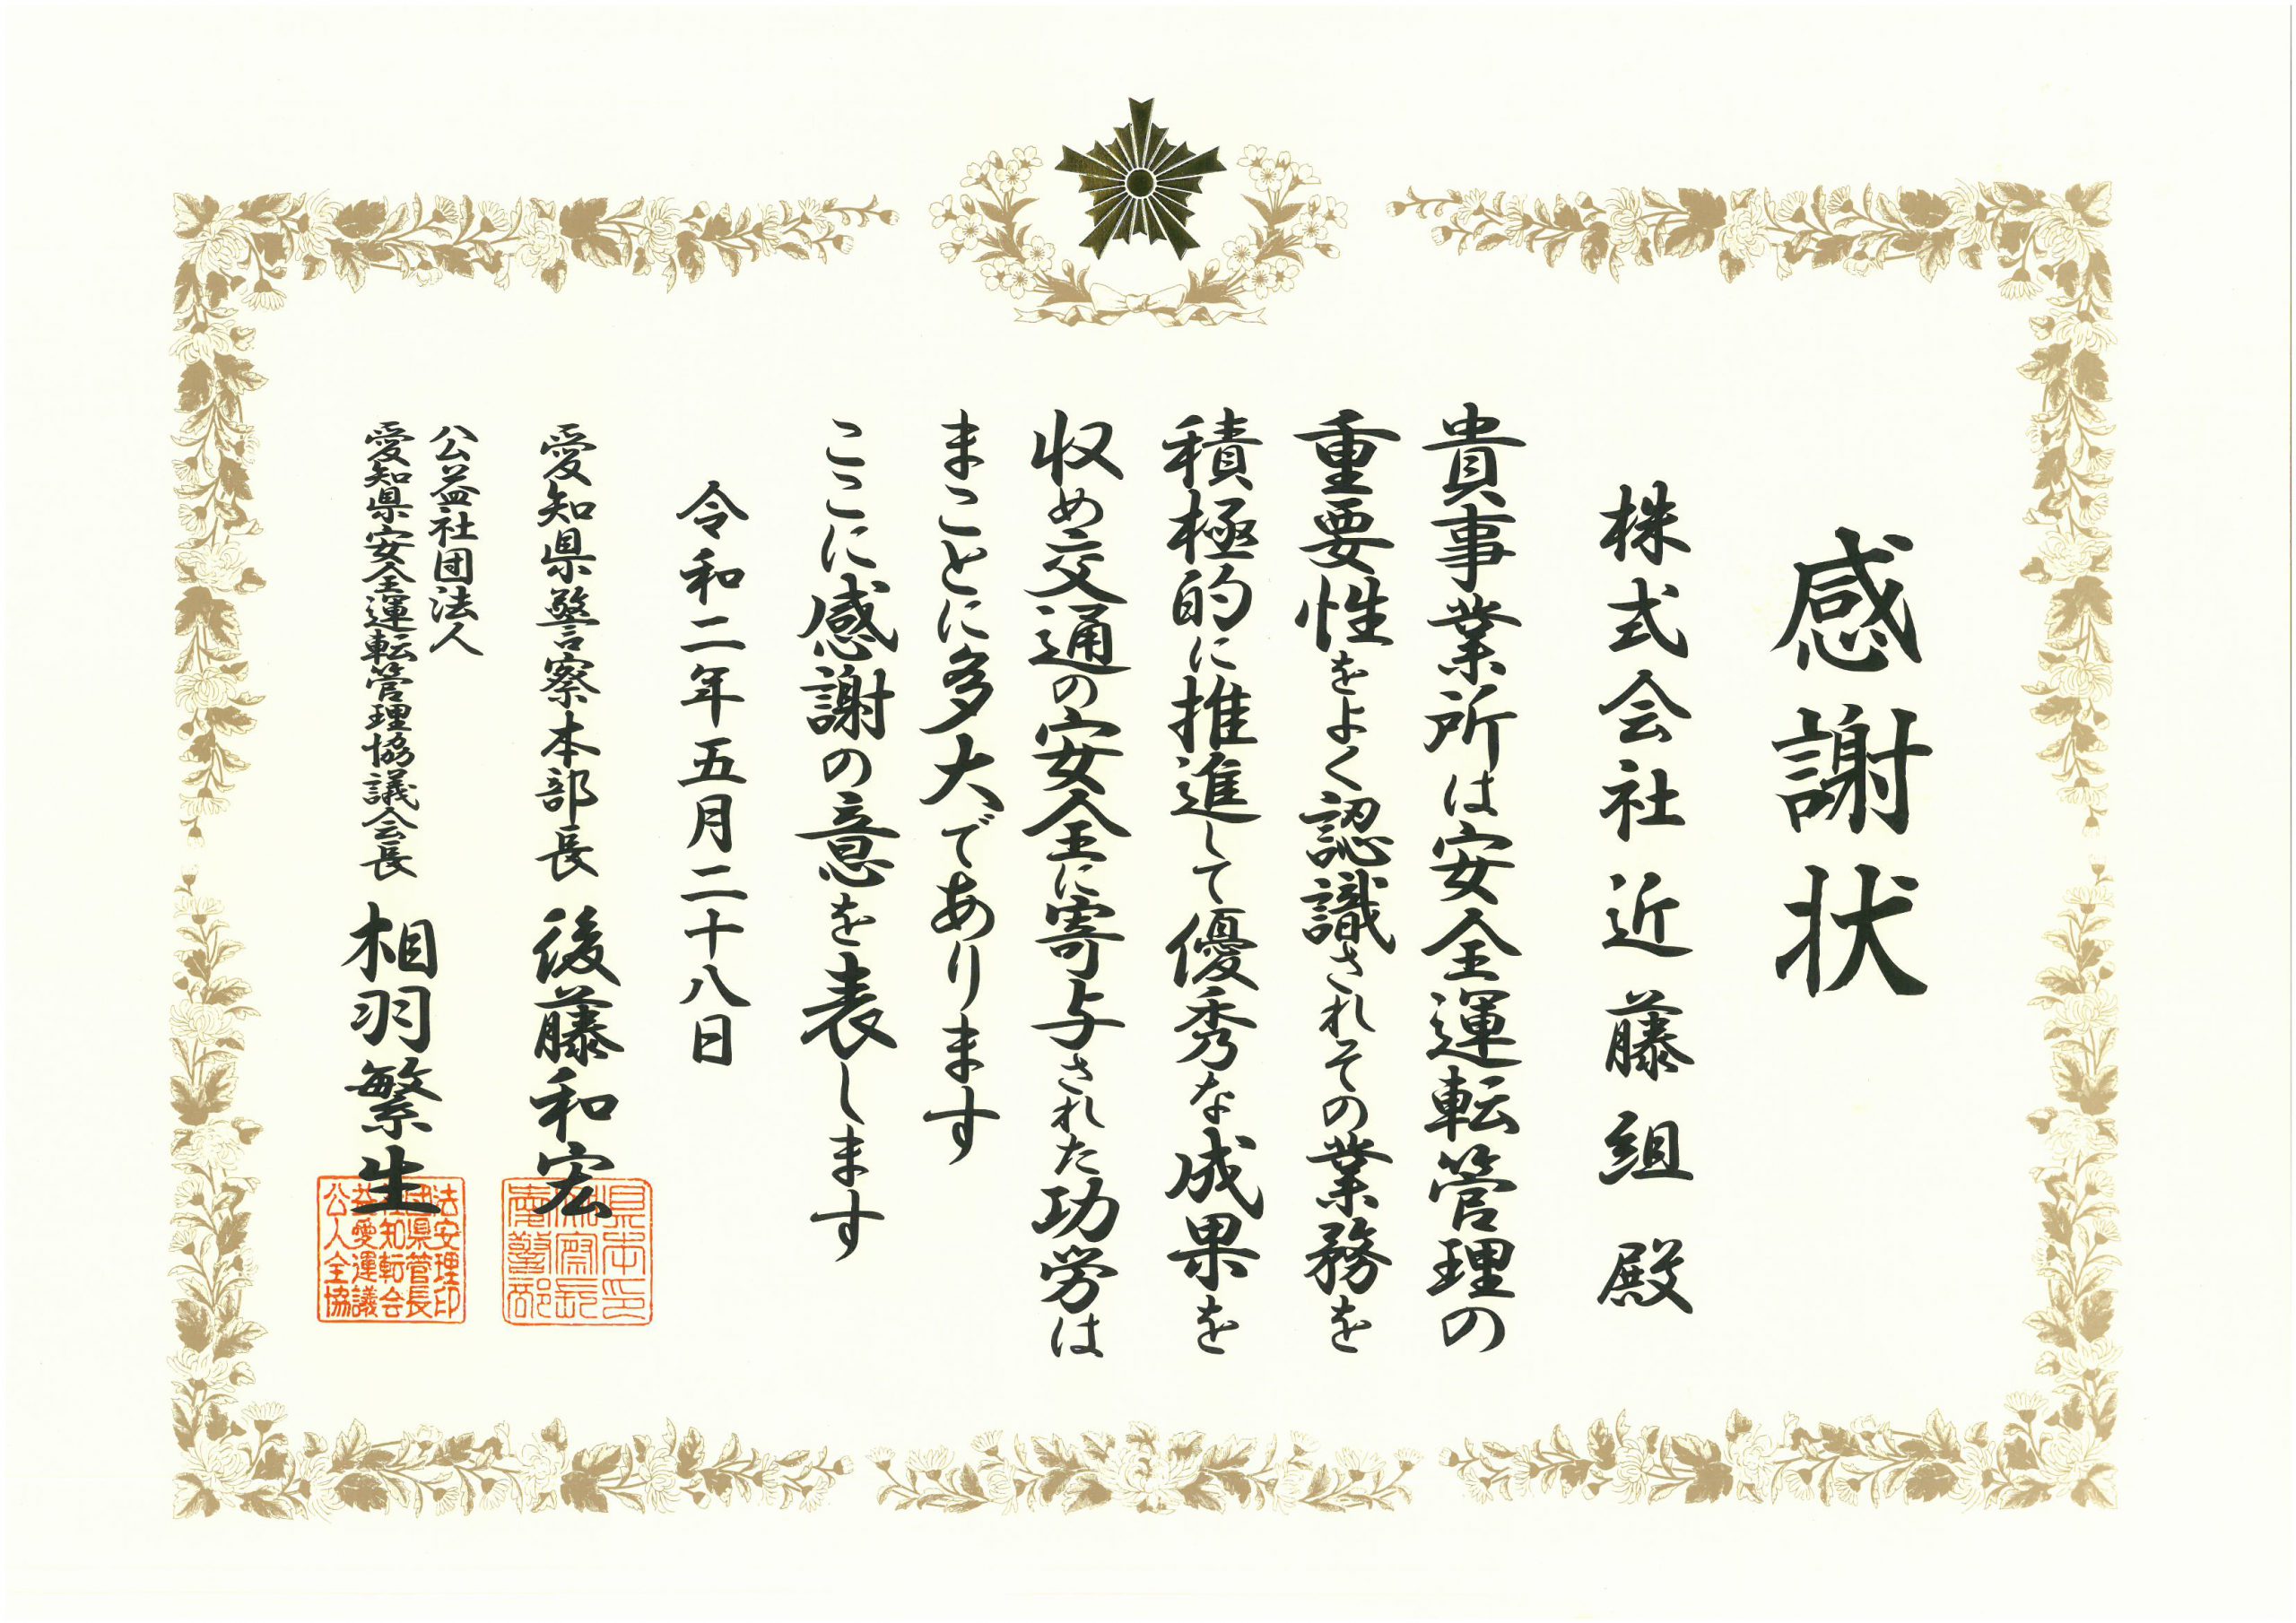 感謝状
株式会社近藤組殿
貴事業所は安全運転管理の
重要性をよく認識されその業務を
積極的に推進して優秀な成果を
収め交通の安全に寄与された功労は
まことに多大であります
ここに感謝の意を表します
令和二年五月二十八日
愛知県警察本部長 後藤和宏
公益社団法人
愛知県安全運転管理協議会長 相羽繁生